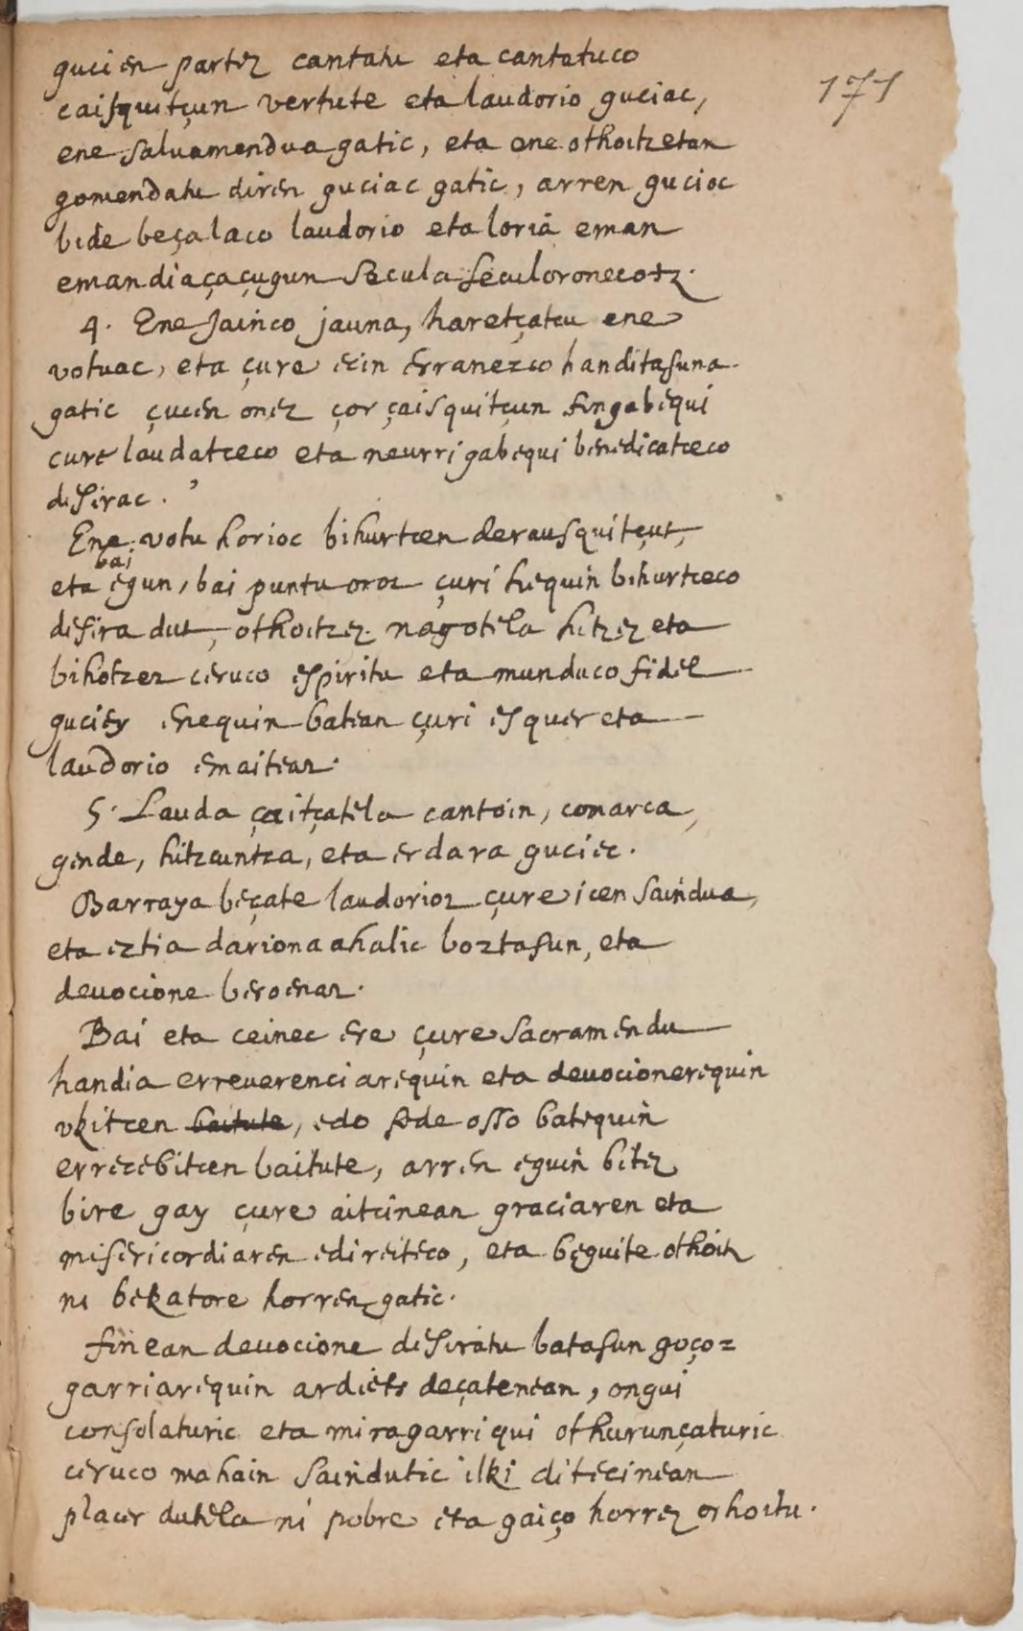 gucien partez cantatu eta cantatuco
171
caisquitçun vertute eta laudorio guciac,
ene saluamendua gatic, eta ene othoitzetan
gomendatu diren guciac gatic, arren gucioc
bide beçalaco laudorio eta loria eman
emandiaçaçugun Secula Seculoronecotz.
4. Ene Jainco jauna, haretçatçu ene
votuac, eta çure ecin erranezco handitasuna
gatic çucen onez çor çaisquitçun fingabequi
çure laudatceco eta neurri gabequi benedicatceco
desirac.
Ene votu horioc bihurtcen derausquitçut,
bai
eta egun, bai puntu oroz çuri hequin bihurtceco
desira dut, othoitzez nagotela hitzez eta
bihotzez ceruco espiritu eta munduco fidel
guciey enequin batean çuri esquer eta
laudorio emaiteaz.
5. Lauda çaitçatela cantoin, comarca,
gende, hitzcuntza, eta erdara guciec.
Barraya beçate laudorioz çure icen saindua,
eta eztia dariona ahalic boztasun, eta
deuocione beroenaz.
Bai eta ceinec ere çure Sacramendu
handia erreuerenciarequin eta deuocionerequin
vkitcen baitute, edo fede osso batequin
errecebitcen baitute, arren eguin bitez
bire gay çure aitcinean graciaren eta
misericordiaren edireiteco, eta beguite othoitz
ni bekatore horren gatic.
finean deuocione desiratu batasun goço=
garriarequin ardiets deçatenean, ongui
consolaturic eta miragarri qui othurunçaturic
ceruco mahain Saindutic ilki ditecinean
placer dutela ni pobre eta gaiço horrez orhoitu.